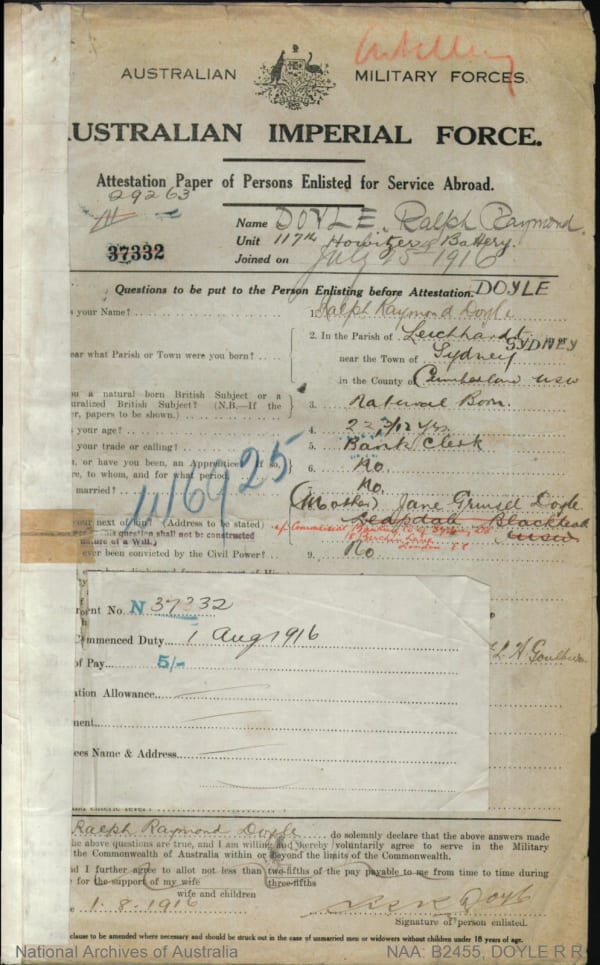 Artillery
AUSTRALIAN MILITARY FORCES.
AUSTRALIAN IMPERIAL FORCE.
Attestation Paper of Persons Enlisted for Service Abroad.
29263
37332
Name DOYLE. Ralph Raymond.
Unit 117th Howitzer Battery.
Joined on July 25 1916
Questions to be put to the Person Enlisting before Attestation. DOYLE
s your Name? 1. Ralph Raymond Doyle
2. In the Parish of Leichhardt
SYDNEY
ear what Parish or Town were you born? near the Town of Sydney
in the County of Cumberland NSW
u a natural born British Subject or a
uralized British Subject? (N.B.—If the 3. Natural Born.
er, papers to be shown.)
s your age? 4. 22 3/12 yrs.
your trade or calling? 5. Bank Clerk
, or have you, been an Apprentice? If so,
re, to whom, and for what period 6. No.
married? No.
25
(Mother) Jane Doyle
your next of kin? (Address to be stated) Leapdale Blackheath
NSW
his question shall not be constructed
nature of a Will.)
c/- Commercial Banking Coy Sydney Ld
18 Birchin Lane
London EC
ever been convicted by the Civil Power? 9. No
ent No. N 37332
Commenced Duty 1 Aug 1916
of Pay 5/-
ation Allowance
ment
ees Name & Address
Ralph Raymond Doyle do solemnly declare that the above answers made
he above questions are true, and I am willing and hereby voluntarily agree to serve in the Military
the Commonwealth of Australia within or beyond the limits of the Commonwealth.
nd I further agree to allot not less than two-fifths of the pay payable to me from time to time during
three-fifths
e for the support of my wife
wife and children
e 1.8.1916 Doyle
Signature of person enlisted.
clause to be amended where necessary and should be struck out in the case of unmarried men or widowers without children under 18 years of age.
National Archives of Australia NAA: B2455, DOYLE R R